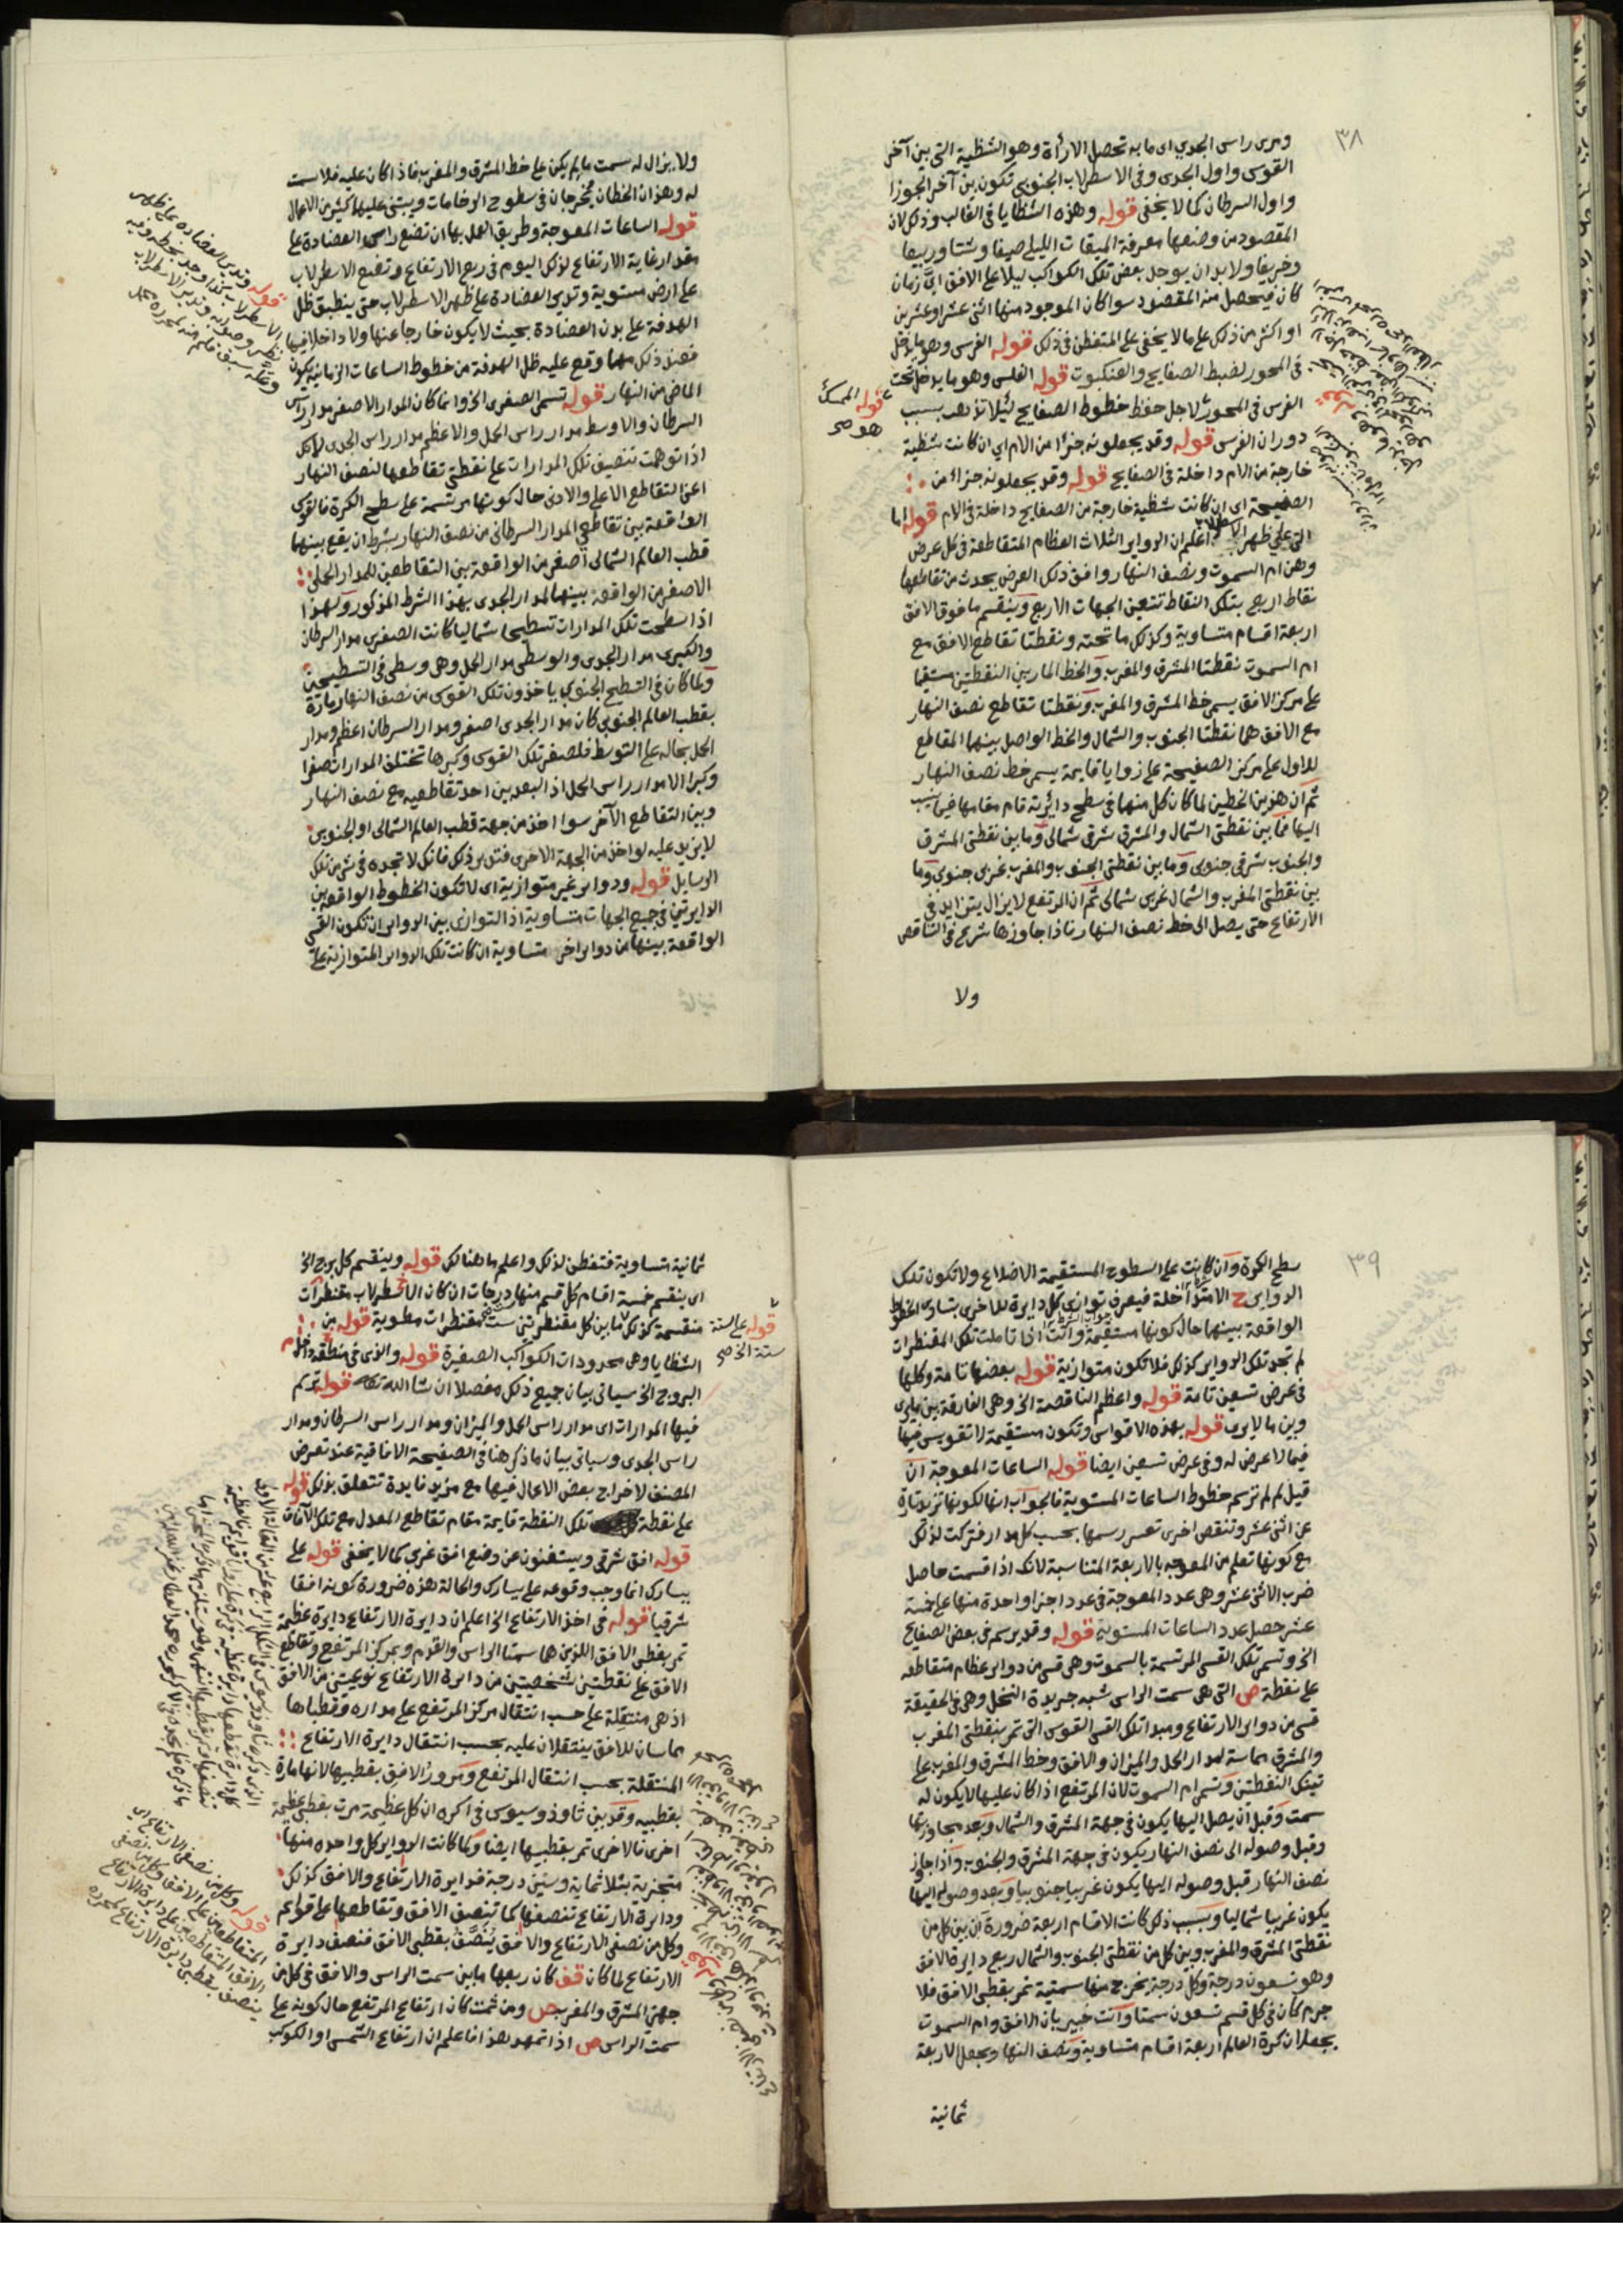 ٣٨
ومرى راس الجدي اى ما به تحصل الاراة وهو الشظية التى بين آخر
القوس واول الجدى وفى الاسطرلاب الجنوبى تكون بين آخر الجوزا
واول السرطان كما لا يخفى قوله وهذه الشظايا فى الغالب وذلك لان
المقصود من وضعها معرفة الميقات الليلى صيفا وشتا وربيعا
وخريفا ولا بد ان يوجد بعض تلك الكواكب ليلا على الافق اىّ زمان
كان فيحصل منه المقصود سوا كان الموجود منها اثنى عشر او عشرين
او اكثر من ذلك على ما لا يخفى على المتفطن فى ذلك قوله الفرس وهو ما يدخل
فى المحور لضبط الصفايح والعنكبوت قوله الفلس وهو ما يدخل تحت
الفرس فى المحور لاجل حفظ خطوط الصفايح ليلا تذهب بسبب
دوران الفرس قوله وقد يجعلونه جزا من الام اى ان كانت شظية
خارجة من الام داخلة فى الصفايح قوله وقد يجعلونه جزا من
الصفيحة اى ان كانت شظية خارجة من الصفايح داخلة فى الام قوله اما
التى على ظهر الاسطرلاب اعلم ان الدواير الثلاث العظام المتقاطعة فى كل عرض
وهن ام السموت ونصف النهار وافق ذلك العرض يحدث من تقاطعها
نقاط اربع بتلك النقاط تتعين الجهات الاربع وينقسم ما فوق الافق
اربعة اقسام متساوية وكذلك ما تحته ونقطتا تقاطع الافق مع
ام السموت نقطتا المشرق والمغرب والخط المار بين النقطتين مستقيما
على مركز الافق يسمى خط المشرق والمغرب ونقطتا تقاطع نصف النهار
مع الافق هما نقطتا الجنوب والشمال والخط الواصل بينهما المقاطع
للاول على مركز الصفيحة على زوايا قايمة يسمى خط نصف النهار
ثم ان هذين الخطين لما كان كل منهما فى سطح دائرته قام مقامها فيما ينسب
اليها فما بين نقطتى الشمال والمشرق شرقى شمالى وما بين نقطتى المشرق
والجنوب شرقى جنوبى وما بين نقطتى الجنوب والمغرب غربى جنوبى وما
بين نقطتى المغرب والشمال غربى شمالى ثم ان المرتفع لا يزال يتزايد فى
الارتفاع حتى يصل الى خط نصف النهار فاذا جاوزها شرع فى التناقص
ولا
قوله الممسك
هو صح
ولا يزال له سمت ما لم يكن على خط المشرق والمغرب فاذا كان عليه فلا سمت
له وهذان الخطان مخرجان فى سطوح الرخامات ويبتنى عليها كثير من الاعمال
قوله الساعات المعوجة وطريق العمل بها ان تضع راس العضادة على
مقدار غاية الارتفاع لذلك اليوم فى ربع الارتفاع وتضع الاسطرلاب
على ارض مستوية وتدير العضادة على ظهر الاسطرلاب حتى ينطبق ظل
الهدفة على بدن العضادة بحيث لا يكون خارجا عنها ولا داخلا فيها
فعند ذلك مهما وقع عليه ظل الهدفة من خطوط الساعات الزمانية يكون
الماضى من النهار قوله تسمى الصغرى الخ وانما كان المدار الاصغر مدار راس
السرطان والاوسط مدار راس الحمل والاعظم مدار راس الجدى لانك
اذا توهمت تنصيف تلك المدارات على نقطتى تقاطعها لنصف النهار
اعنى التقاطع الاعلى والادنى حال كونها مرتسمة على سطح الكرة فالقوس
الواقعة بين تقاطعى المدار السرطانى من نصف النهار بشرط ان يقع بينهما
قطب العالم الشمالى اصغر من الواقعة بين التقاطعين للمدار الحملى
الاصغر من الواقعة بينهما لمدار الجدى بهذا الشرط المذكور ولهذا
اذا سطحت تلك المدارات تسطيحا شماليا كانت الصغرى مدار السرطان
والكبرى مدار الجدى والوسطى مدار الحمل وهى وسطى فى التسطيحين
ولما كان فى التسطيح الجنوبى ياخذون تلك القوس من نصف النهار مارة
بقطب العالم الجنوبى كان مدار الجدى اصغر ومدار السرطان اعظم ومدار
الحمل بحاله على التوسط فلصغر تلك القوس وكبرها تختلف المدارات صغرا
وكبرا الا مدار راس الحمل اذ البعد بين احد تقاطعيه مع نصف النهار
وبين التقاطع الآخر سوا اخذ من جهة قطب العالم الشمالى او الجنوبى
لا يزيد عليه لو اخذ من الجهة الاخرى فتدبر ذلك فانك لا تجده فى شى من تلك
الرسايل قوله ودواير غير متوازية اى لا تكون الخطوط الواقعة بين
الدايرتين فى جميع الجهات متساوية اذ التوازى بين الدواير ان تكون القسى
الواقعة بينها من دواير اخر متساوية ان كانت تلك الدواير المتوازية على
٣٩
سطح الكرة وان كانت على السطوح المستقيمة الاضلاع ولا تكون تلك
الدواير ح الا متداخلة فيعرف توازى كل دايرة للاخرى بتساوى الخطوط
الواقعة بينهما حال كونها مستقيمة وانت اذا تاملت تلك المقنطرات
لم تجد تلك الدواير كذلك فلا تكون متوازية قوله بعضها تامة وكلها
فى عرض تسعين تامة قوله واعظم الناقصة الخ وهى الفارقة بين ما يرى
وبين ما لا يرى قوله بهذه الاقواس وتكون مستقيمة لا تقويس فيها
فيما لا عرض له وفى عرض تسعين ايضا قوله الساعات المعوجة ان
قيل لم لم ترسم خطوط الساعات المستوية فالجواب انها لكونها تزيد تارة
عن اثنى عشر وتنقص اخرى تعسر رسمها بحسب كل مدار فتركت لذلك
مع كونها تعلم من المعوجه بالاربعة المتناسبة لانك اذا قسمت حاصل
ضرب الاثنى عشر وهى عدد المعوجة فى عدد اجزا واحدة منها على خمسة
عشر حصل عدد الساعات المستوية قوله وقد يرسم فى بعض الصفايح
الخ وتسمى تلك القسى المرتسمة بالسموت وهى قسى من دواير عظام متقاطعه
على نقطة ص التى هى سمت الراس شبه جريدة النخل وهى فى الحقيقة
قسى من دواير الارتفاع ومبدا تلك القسى القوس التى تمر بنقطتى المغرب
والمشرق مماسة لمدار الحمل والميزان والافق وخط المشرق والمغرب على
تينك النقطتين وتسمى ام السموت لان المرتفع اذا كان عليها لا يكون له
سمت وقبل ان يصل اليها يكون فى جهة المشرق والشمال وبعد مجاوزتها
وقبل وصوله الى نصف النهار يكون فى جهة المشرق والجنوب واذا جاوز
نصف النهار قبل وصوله اليها يكون غربيا جنوبيا وبعد وصوله اليها
يكون غربيا شماليا وبسبب ذلك كانت الاقسام اربعة ضرورة ان بين كل من
نقطتى المشرق والمغرب وبين كل من نقطتى الجنوب والشمال ربع دايرة الافق
وهو تسعون درجة وكل درجة يخرج منها سمتية تمر بقطبى الافق فلا
جرم كان فى كل قسم تسعون سمتا وانت خبير بان الافق وام السموت
يجعلان كرة العالم اربعة اقسام متساوية ونصف النهار يجعل الاربعة
ثمانية
ثمانية متساوية فتفطن لذلك واعلم ما هنالك قوله وينقسم كل برج الخ
اى ينقسم خمسة اقسام كل قسم منها درجات ان كان الاسطرلاب مقنطرات
منقسمة كذلك ما بين كل مقنطرتين ست مقنطرات مطوية قوله من
الشظايا وهى محدودات الكواكب الصغيرة قوله والذى فى منطقة داخل
البروج الخ سياتى بيان جميع ذلك مفصلا ان شا الله تعالى قوله ترسم
فيها المدارات اى مدار راس الحمل والميزان ومدار راس السرطان ومدار
راس الجدى وسياتى بيان ما ذكر هنا فى الصفيحة الافاقية عند تعرض
المصنف لاخراج بعض الاعمال فيها مع مزيد فايدة تتعلق بذلك قوله
على نقطة تلك النقطة قايمة مقام تقاطع المعدل مع تلك الآفاق
قوله افق شرقى ويستغنون عن وضع افق غربى كما لا يخفى قوله على
يسارك انما وجب وقوعه على يسارك والحالة هذه ضرورة كونه افقا
شرقيا قوله فى اخذ الارتفاع الخ اعلم ان دايرة الارتفاع دايرة عظيمة
تمر بقطبى الافق اللذين هما سمتا الراس والقدم وبمركز المرتفع وتقاطع
الافق على نقطتين شخصيتين من دايرة الارتفاع نوعيتين من الافق
اذ هى منتقلة على حسب انتقال مركز المرتفع على مداره وقطباها
مماسان للافق ينتقلان عليه بحسب انتقال دايرة الارتفاع
المنتقلة بحسب انتقال المرتفع ومرور الافق بقطبيها لانها مارة
بقطبيه وقد بين ثاوذوسيوس فى اكره ان كل عظيمة مرت بقطبى عظيمة
اخرى فالاخرى تمر بقطبيها ايضا ولما كانت الدواير كل واحده منها
متجزية بثلاثماية وستين درجة فدايرة الارتفاع والافق كذلك
ودايرة الارتفاع تنصفها كما تنصف الافق وتقاطعها على قوايم
وكل من نصفى الارتفاع والافق يُنَصَّفُ بقطبى الافق فنصف دايرة
الارتفاع لما كان قف كان ربعها ما بين سمت الراس والافق فى كل من
جهتى المشرق والمغرب ص ومن ثمت كان ارتفاع المرتفع حال كونه على
سمت الراس ص اذا تمهد هذا فاعلم ان ارتفاع الشمس او الكوكب
قوله على الستة
ستة الخ صح
قوله وكل من نصفى الارتفاع اى
المتقاطعين على الافق وكل من نصفى
الافق المتقاطعين على دايرة الارتفاع
ينصف بقطبى دايرة الارتفاع لمحرره